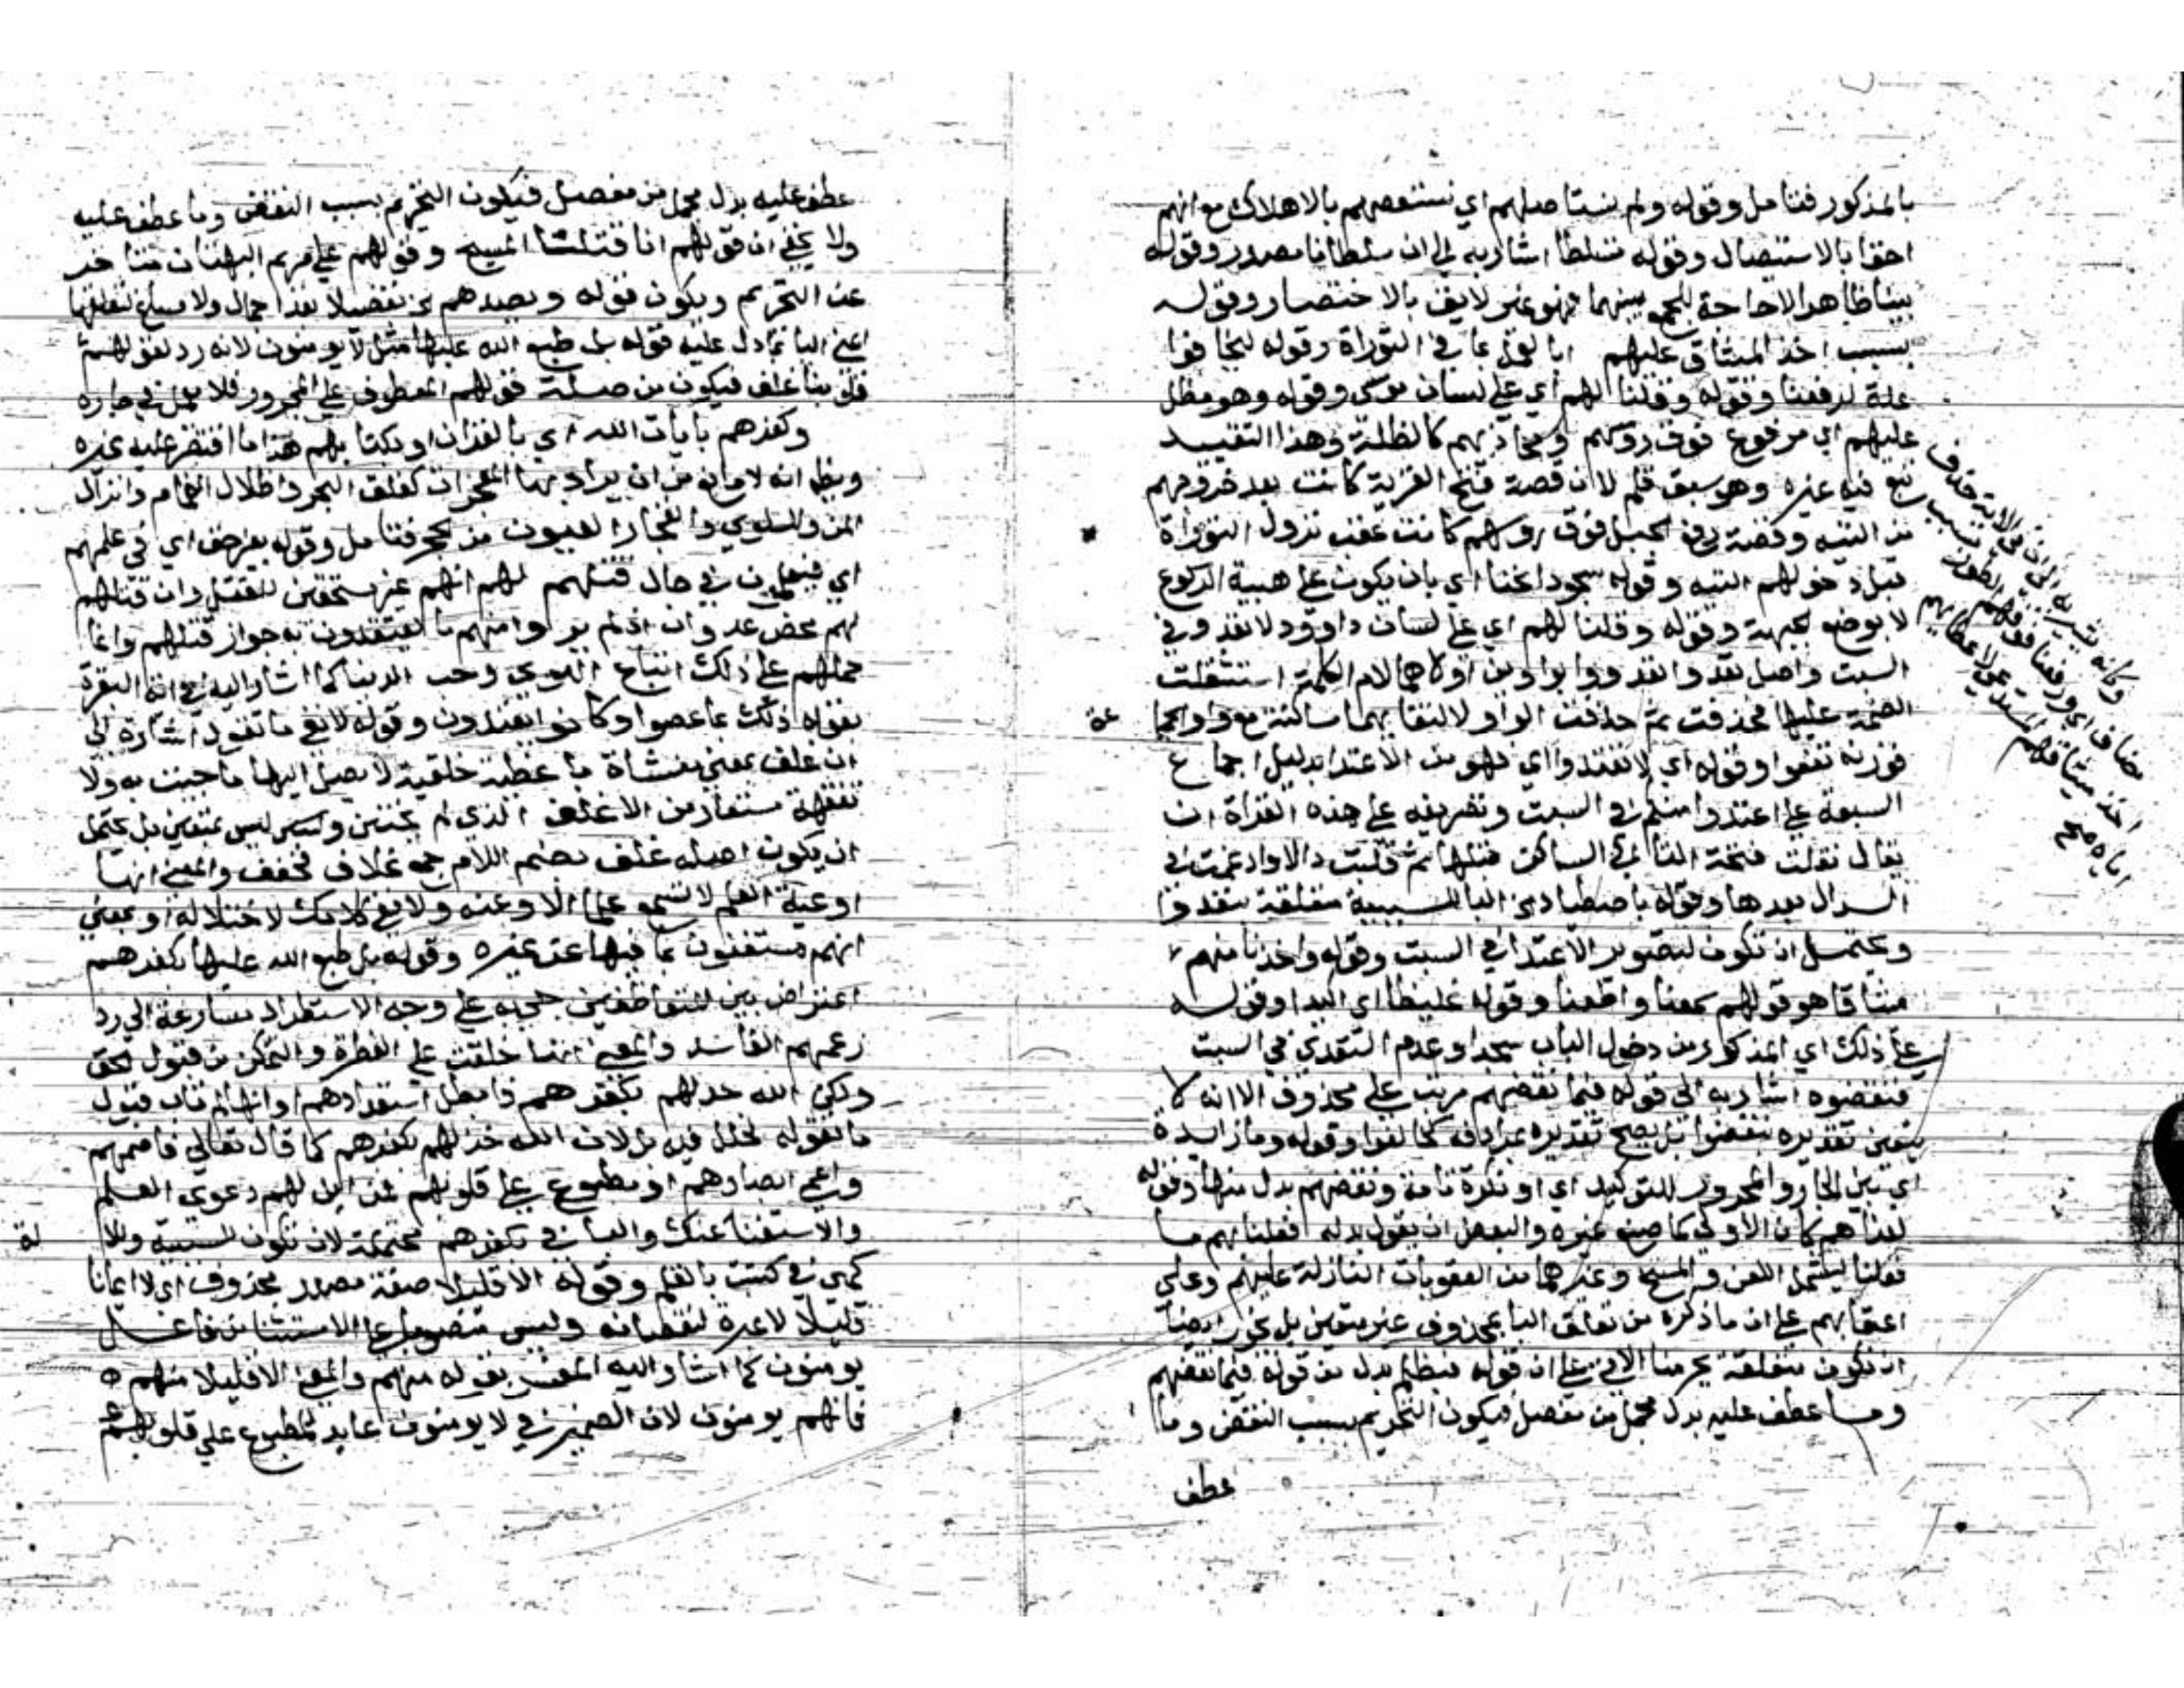 بالمذكور فتامل وقوله ولم نستاصلهم اي نستقصهم بالاهلاك مع انهم
احقا بالاستيصال وقوله تسلطا اشار به الى ان سلطانا مصدر وقوله
بينا ظاهرا لا حاجة للجمع بينهما فهو غير لايق بالاختصار وقوله
بسبب اخذ الميثاق عليهم بما في التوراة وقوله ليخافوا
علة لرفعنا وقوله وقلنا لهم اي على لسان موسى وقوله وهو مظل
عليهم اي مرفوع فوق روسهم كالظلة وهذا التقييد
تبع فيه غيره وهو سبق قلم لان قصة فتح القرية كانت بعد خروجهم
من التيه وقصة رفع الجبل فوق روسهم كانت عقب نزول التوراة
قبل دخولهم التيه وقوله سجودا نحنا اي بان يكون على هيية الركوع
لا بوضع الجبهة وقوله وقلنا لهم اي على لسان داوود لا تعدوا في
السبت واصل تعدوا تعدووا بواوين اولاهما لام الكلمة استثقلت
الضمة عليها فحذفت ثم حذفت الواو لالتقايهما ساكنة مع واو الجمع
فوزنه تفعوا وقوله اي لا تعتدوا اي فهو من الاعتدا بدليل اجماع
السبعة على اعتدوا منكم في السبت وتصريفه على هذه القراة ان
يقال نقلت فتحة التا الى الساكن قبلها ثم قلبت دالا وادغمت في
الدال بعدها وقوله باصطياد البا للسببية متعلقة بتعدوا
ويحتمل ان تكون لتصوير الاعتدا في السبت وقوله واخذنا منهم
ميثاقا هو قولهم سمعنا واطعنا وقوله غليظا اي اكيدا وقوله
على ذلك اي المذكور من دخول الباب سجدا وعدم التعدي في السبت
فنقضوه اشار به الى قوله فبما نقضهم مرتب على محذوف الا انه لا
يتعين تقديره بنقضوا بل يصح تقديره بمرادفه كخالفوا وقوله وما زايدة
اي بين الجار والمجرور للتوكيد اي او نكرة تامة ونقضهم بدل منها وقوله
لعناهم كان الاولى كما صنع غيره والبعض ان يقول بدله افعلنا بهم ما
فعلنا ليشمل اللعن والمسخ وغيرهما من العقوبات النازلة عليهم وعلى
اعقابهم على ان ما ذكره من تعلق البا بمحذوف غير متعين بل يجوز ايضا
ان تكون متعلقة بحرمنا الاتي على ان قوله فبظلم بدل من قوله فبما نقضهم
وما عطف عليه بدل مجمل من مفصل فيكون التحريم بسبب النقض وما
عطف
وكانه يشير به الى ان في الاية حذف
مضاف اي ورفعنا فوقهم الطور بسبب
اخذ ميثاقهم
اياه صح
عطف عليه بدل مجمل من مفصل فيكون التحريم بسبب النقض وما عطف عليه
ولا يخفى ان قولهم انا قتلنا المسيح وقولهم على مريم البهتان متاخر
عن التحريم ويكون قوله وبصدهم تفصيلا بعد اجمال
اعني البا بما دل عليه قوله بل طبع الله عليها مثل لا يومنون لانه رد لقولهم
قلوبنا غلف فيكون من صلة قولهم المعطوف على المجرور فلا يعمل في جاره
وكفرهم بايات الله اي بالقران او بكتابهم هذا ما اقتصر عليه غيره
ويظهر انه لا مانع من ان يراد بها المعجزات كفلق البحر واظلال الغمام وانزال
المن والسلوى وانفجار العيون من الحجر فتامل وقوله بغير حق اي في علمهم
اي فيعلمون في حال قتلهم لهم انهم غير مستحقين للقتل وان قتلهم
لهم محض عدوان اذ لم يروا منهم ما يعتقدون به جواز قتلهم وانما
حملهم على ذلك اتباع الهوى وحب الدنيا كما اشار اليه في اية البقرة
بقوله ذلك بما عصوا وكانوا يعتدون وقوله لا يعي ما تقول اشارة الى
ان غلف بمعنى مغشاة باغطية خلقية لا يصل اليها ما جيت به ولا
تفقهه مستعار من الاغلف الذي لم يختتن وليس بمتعين بل يحتمل
ان يكون اصله غلف بضم اللام جمع غلاف فخفف والمعنى انها
اوعية العلم لا تسمع علما الا وعته ولا تعي كلامك لاختلاله او بمعنى
انهم مستغنون بما فيها عن غيره وقوله بل طبع الله عليها بكفرهم
اعتراض بين المتعاطفين جي به على وجه الاستطراد مسارعة الى رد
زعمهم الفاسد والمعنى انها خلقت على الفطرة والتمكن من قبول الحق
ولكن الله خذلهم بكفرهم فابطل استعدادهم او انها لم تاب قبول
ما تقوله لخلل فيه بل لان الله خذلهم بكفرهم كما قال تعالى فاصمهم
واعمى ابصارهم او مطبوع على قلوبهم فمن اين لهم دعوى العلم
والاستغنا عنك والبا في بكفرهم محتملة لان تكون للسببية وللالة
كهي في كتبت بالقلم وقوله الا قليلا صفة مصدر محذوف اي الا ايمانا
قليلا لا عبرة لنقصانه وليس منصوبا على الاستثنا من فاعل
يومنون كما اشار اليه المفسر بقوله منهم والمعنى الا قليلا منهم
فانهم يومنون لان الضمير في لا يومنون عايد للمطبوع على قلوبهم